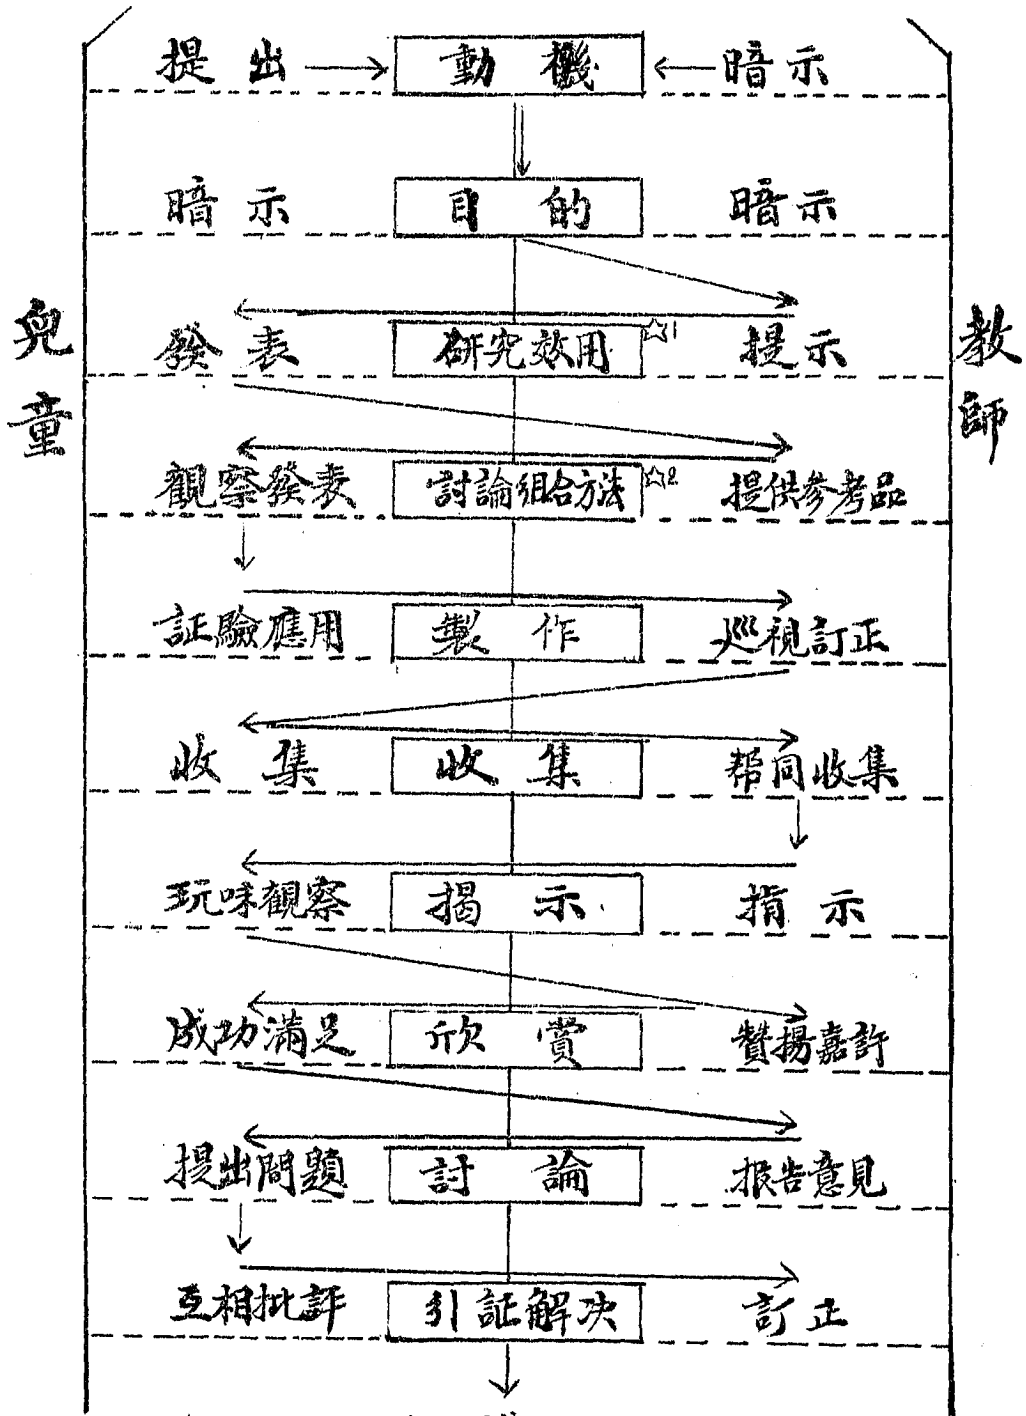 提出 動機 暗示
暗示 目的 暗示
兒童
教師
發表 研究效用 ☆1 提示
觀察發表 討論組合方法 ☆2 提供參考品
証驗應用 製作 巡視訂正
收集 收集 幇同收集
玩味觀察 揭示 指示
成功滿足 欣賞 贊揚嘉許
提出問題 討論 报告意見
互相批評 引証解决 訂正